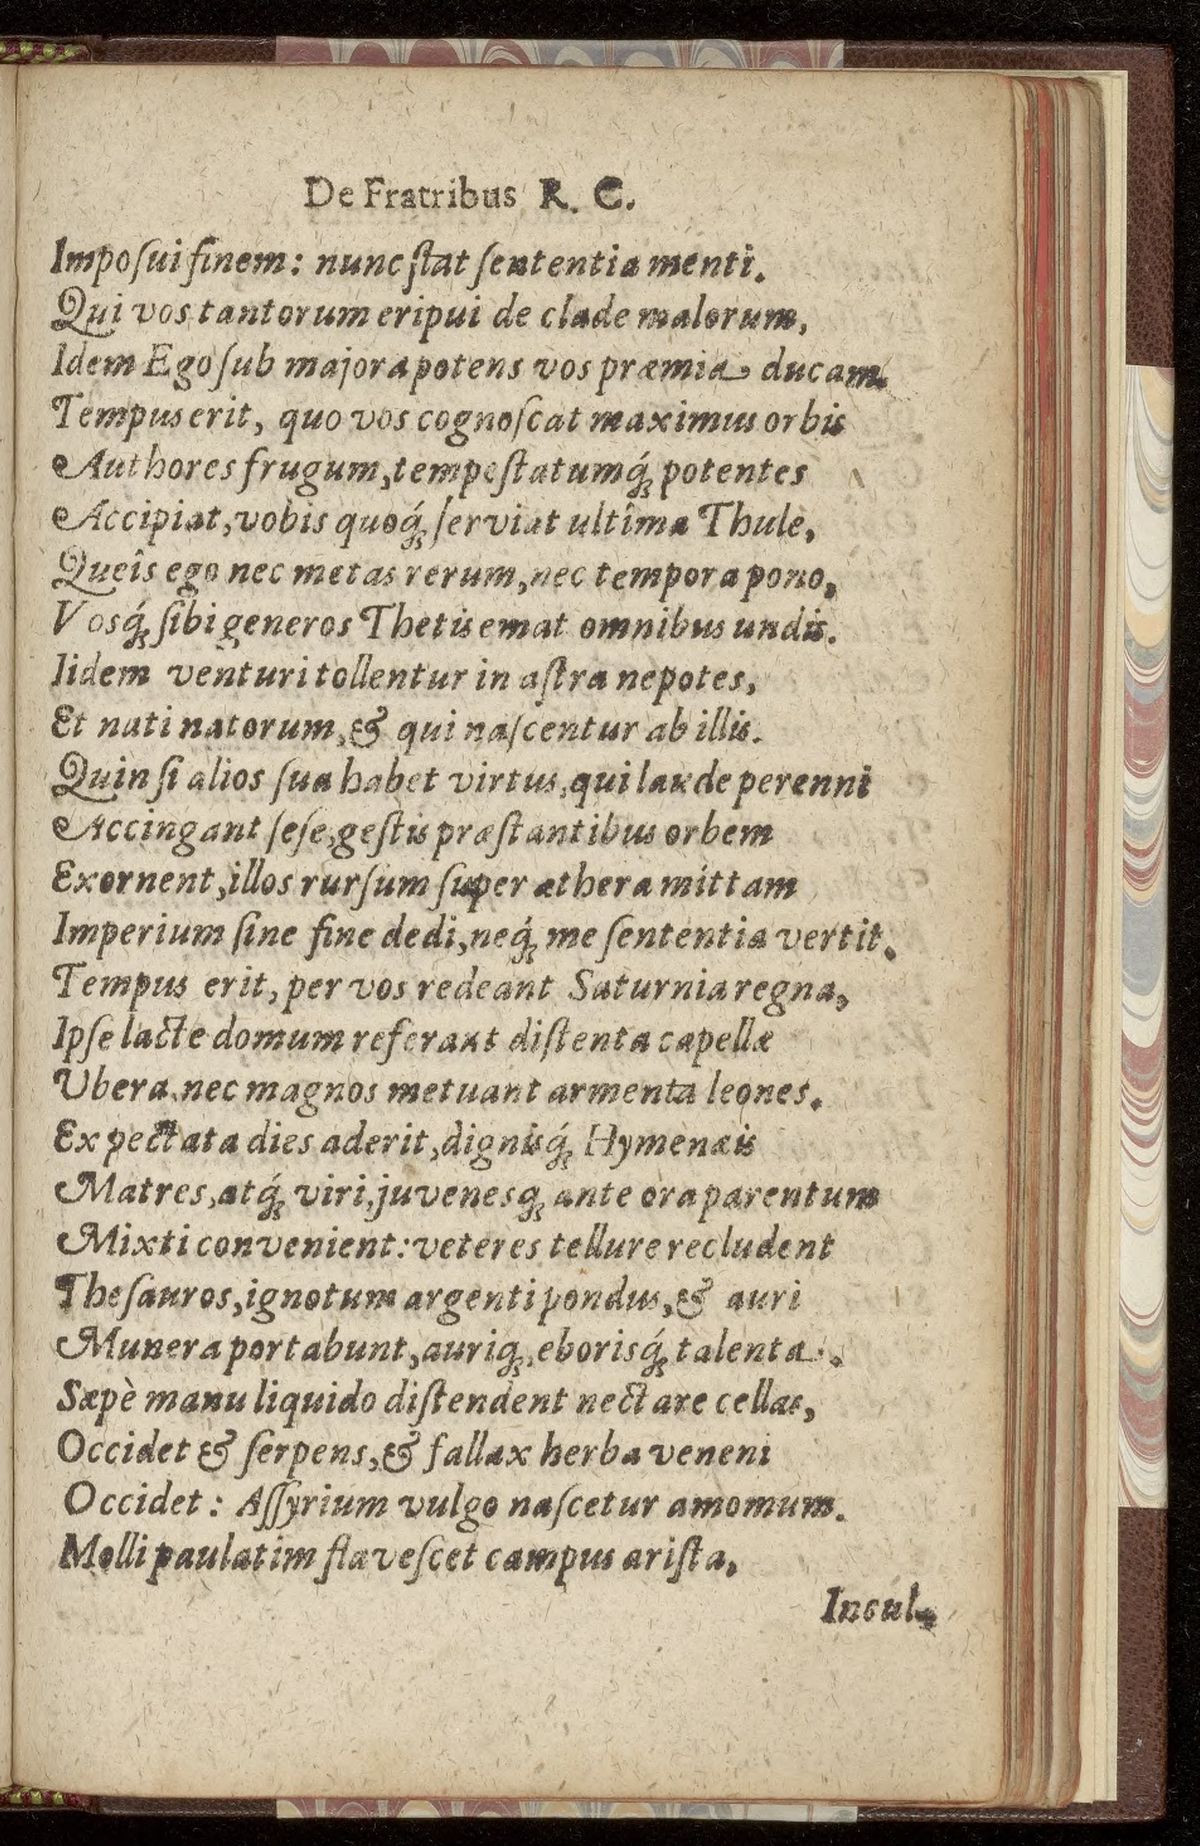 De Fratribus R. C.
Impoſui finem: nunc ſtat ſententia menti.
Qui vos tantorum eripui de clade malorum,
Idem Ego ſub majora potens vos præmia ducam.
Tempus erit, quo vos cognoſcat maximus orbis
Authores frugum, tempeſtatumq́; potentes
Accipiat, vobis quoq́; ſerviat ultima Thule,
Queîs ego nec metas rerum, nec tempora pono,
Vosq́; ſibi generos Thetis emat omnibus undis.
Iidem venturi tollentur in aſtra nepotes,
Et nati natorum, & qui naſcentur ab illis.
Quin ſi alios ſua habet virtus, qui laude perenni
Accingant ſeſe, geſtis præſtantibus orbem
Exornent, illos rurſum ſuper æthera mittam
Imperium ſine fine dedi, neq́; me ſententia vertit.
Tempus erit, per vos redeant Saturnia regna,
Ipſe lacte domum referant diſtenta capellæ
Vbera, nec magnos metuant armenta leones.
Expectata dies aderit, dignisq́; Hymenæis
Matres, atq́; viri, juvenesq; ante ora parentum
Mixti convenient: veteres tellure recludent
Theſauros, ignotum argenti pondus, & auri
Munera portabunt, auriq;, eborisq́; talenta.
Sæpè manu liquido diſtendent nectare cellas,
Occidet & ſerpens, & fallax herba veneni
Occidet: Aſſyrium vulgo naſcetur amomum.
Molli paulatim flaveſcet campus ariſta,
Incul-